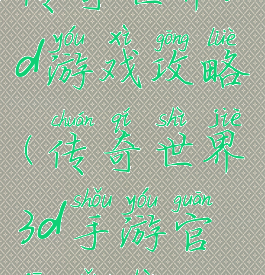 yóu xì gōng lüè
d游戏攻略
chuán qí shì jiè
(传奇世界
shǒu yóu guān
3d手游官